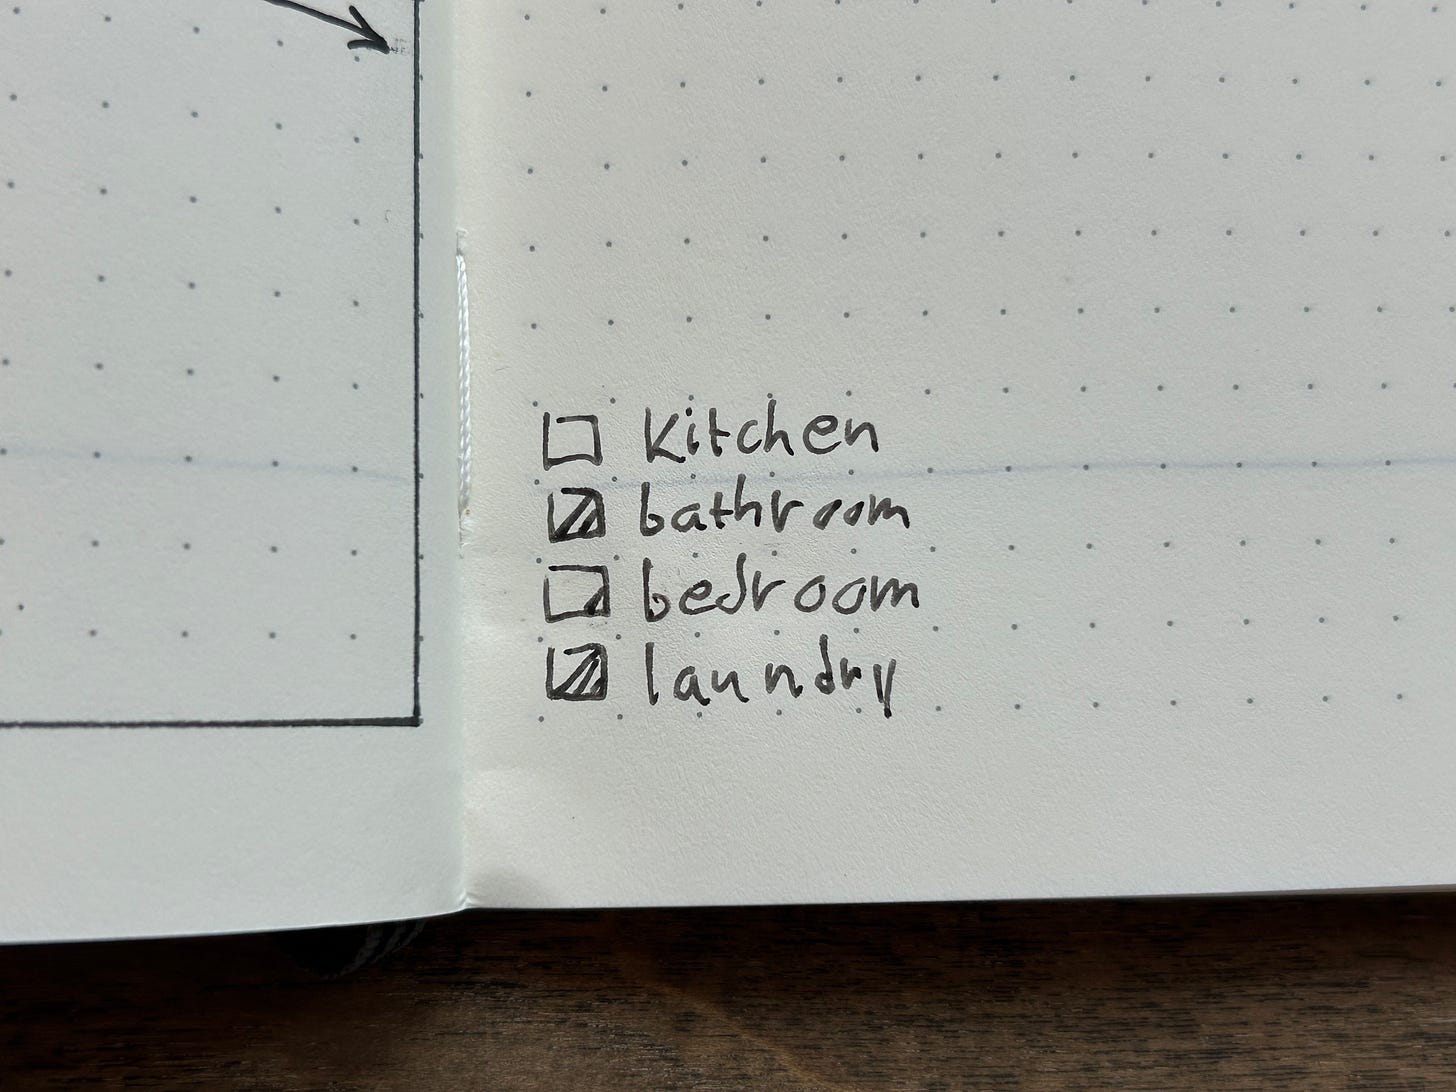 ☐ Kitchen
☑ bathroom
☐ bedroom
☑ laundry